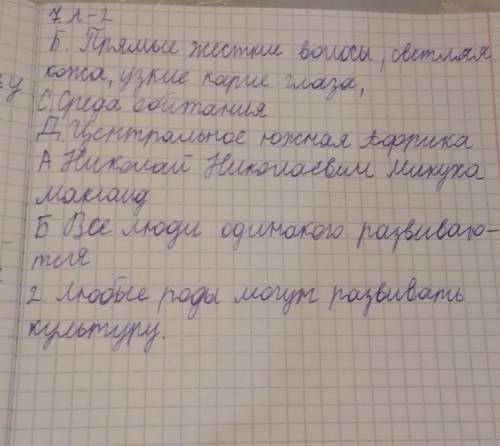 7. А-2
Б. Прямые жесткие волосы, светлая
кожа, узкие карие глаза,
С. Среда обитания
Д. Центральное южная Африка
А Николай Николаевич Микуха
маклаид
Б Все люди одинакого развиваю-
тся
2 Любые роды могут развивать
культуру.